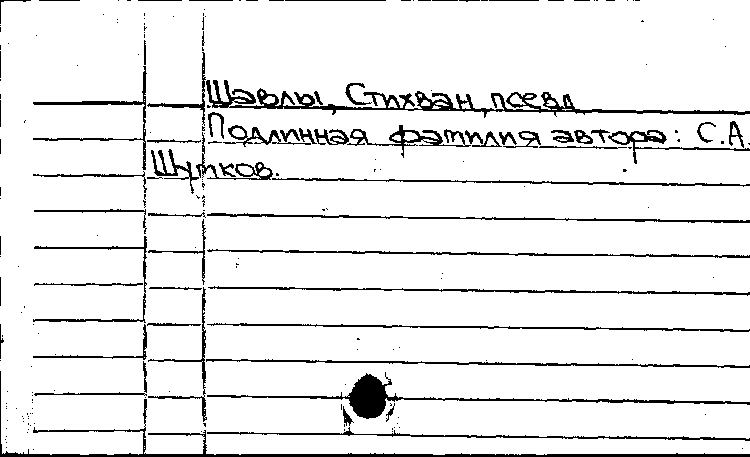 Шавлы, Стихван, псевд
Подлинная фамилия автора: С.А.
Шупков.